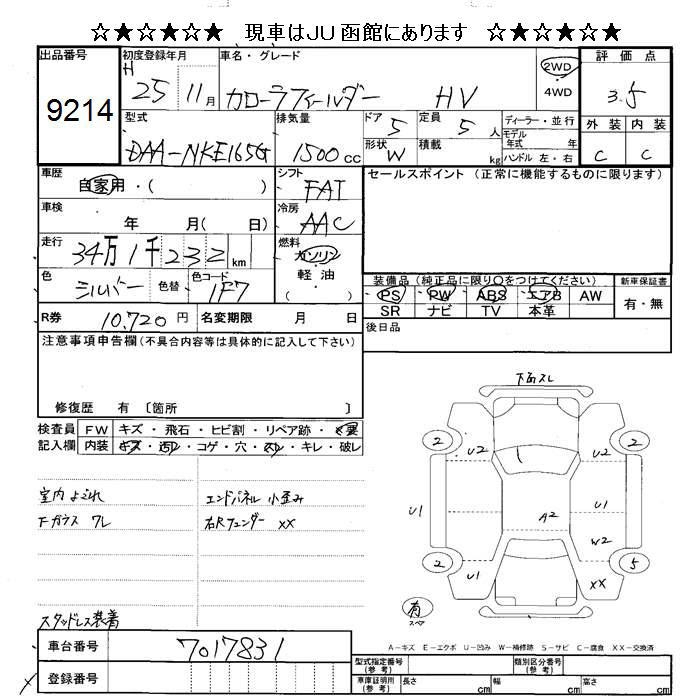 ☆★☆★☆★ 現車はJU函館にあります ☆★☆★☆★
出品番号
9214
初度登録年月
H 25 11月
車名・グレード
カローラフィールダー HV
2WD
・
4WD
評価点
3.5
外装 内装
C C
型式
DAA-NKE165G
排気量
1500cc
ドア 5
形状 W
定員 5 人
積載 kg
ディーラー・並行
モデル年式 年
ハンドル 左・右
車歴
自家用・( )
シフト
FAT
セールスポイント (正常に機能するものに限ります)
車検
年 月( 日)
冷房
AAC
走行
34万1千232km
燃料
ガソリン
・
軽油
( )
色
シルバー
色替
色コード
1F7
装備品 (純正品に限り○をつけてください)
新車保証書
PS PW ABS エアB AW
SR ナビ TV 本革
有・無
R券 10,720円
名変期限 月 日
後日品
注意事項申告欄 (不具合内容等は具体的に記入して下さい)
修復歴 有 〔箇所 〕
検査員
記入欄
FW キズ・飛石・ヒビ割・リペア跡・ X裏
内装 キズ・汚レ・コゲ・穴・スレ・キレ・破レ
室内 よごれ
エンドパネル 小歪み
Fガラス ワレ
右Rフェンダー XX
スタッドレス装着
下面スレ
2 U2 U2 2
U1 A2 U1
W2
2 U1 XX 5
有
スペア
A-キズ E-エクボ U-凹み W-補修跡 S-サビ C-腐食 XX-交換済
車台番号
7017831
登録番号
型式指定番号
(参考)
類別区分番号
(参考)
車庫証明用
(参考)
長さ cm
幅 cm
高さ cm